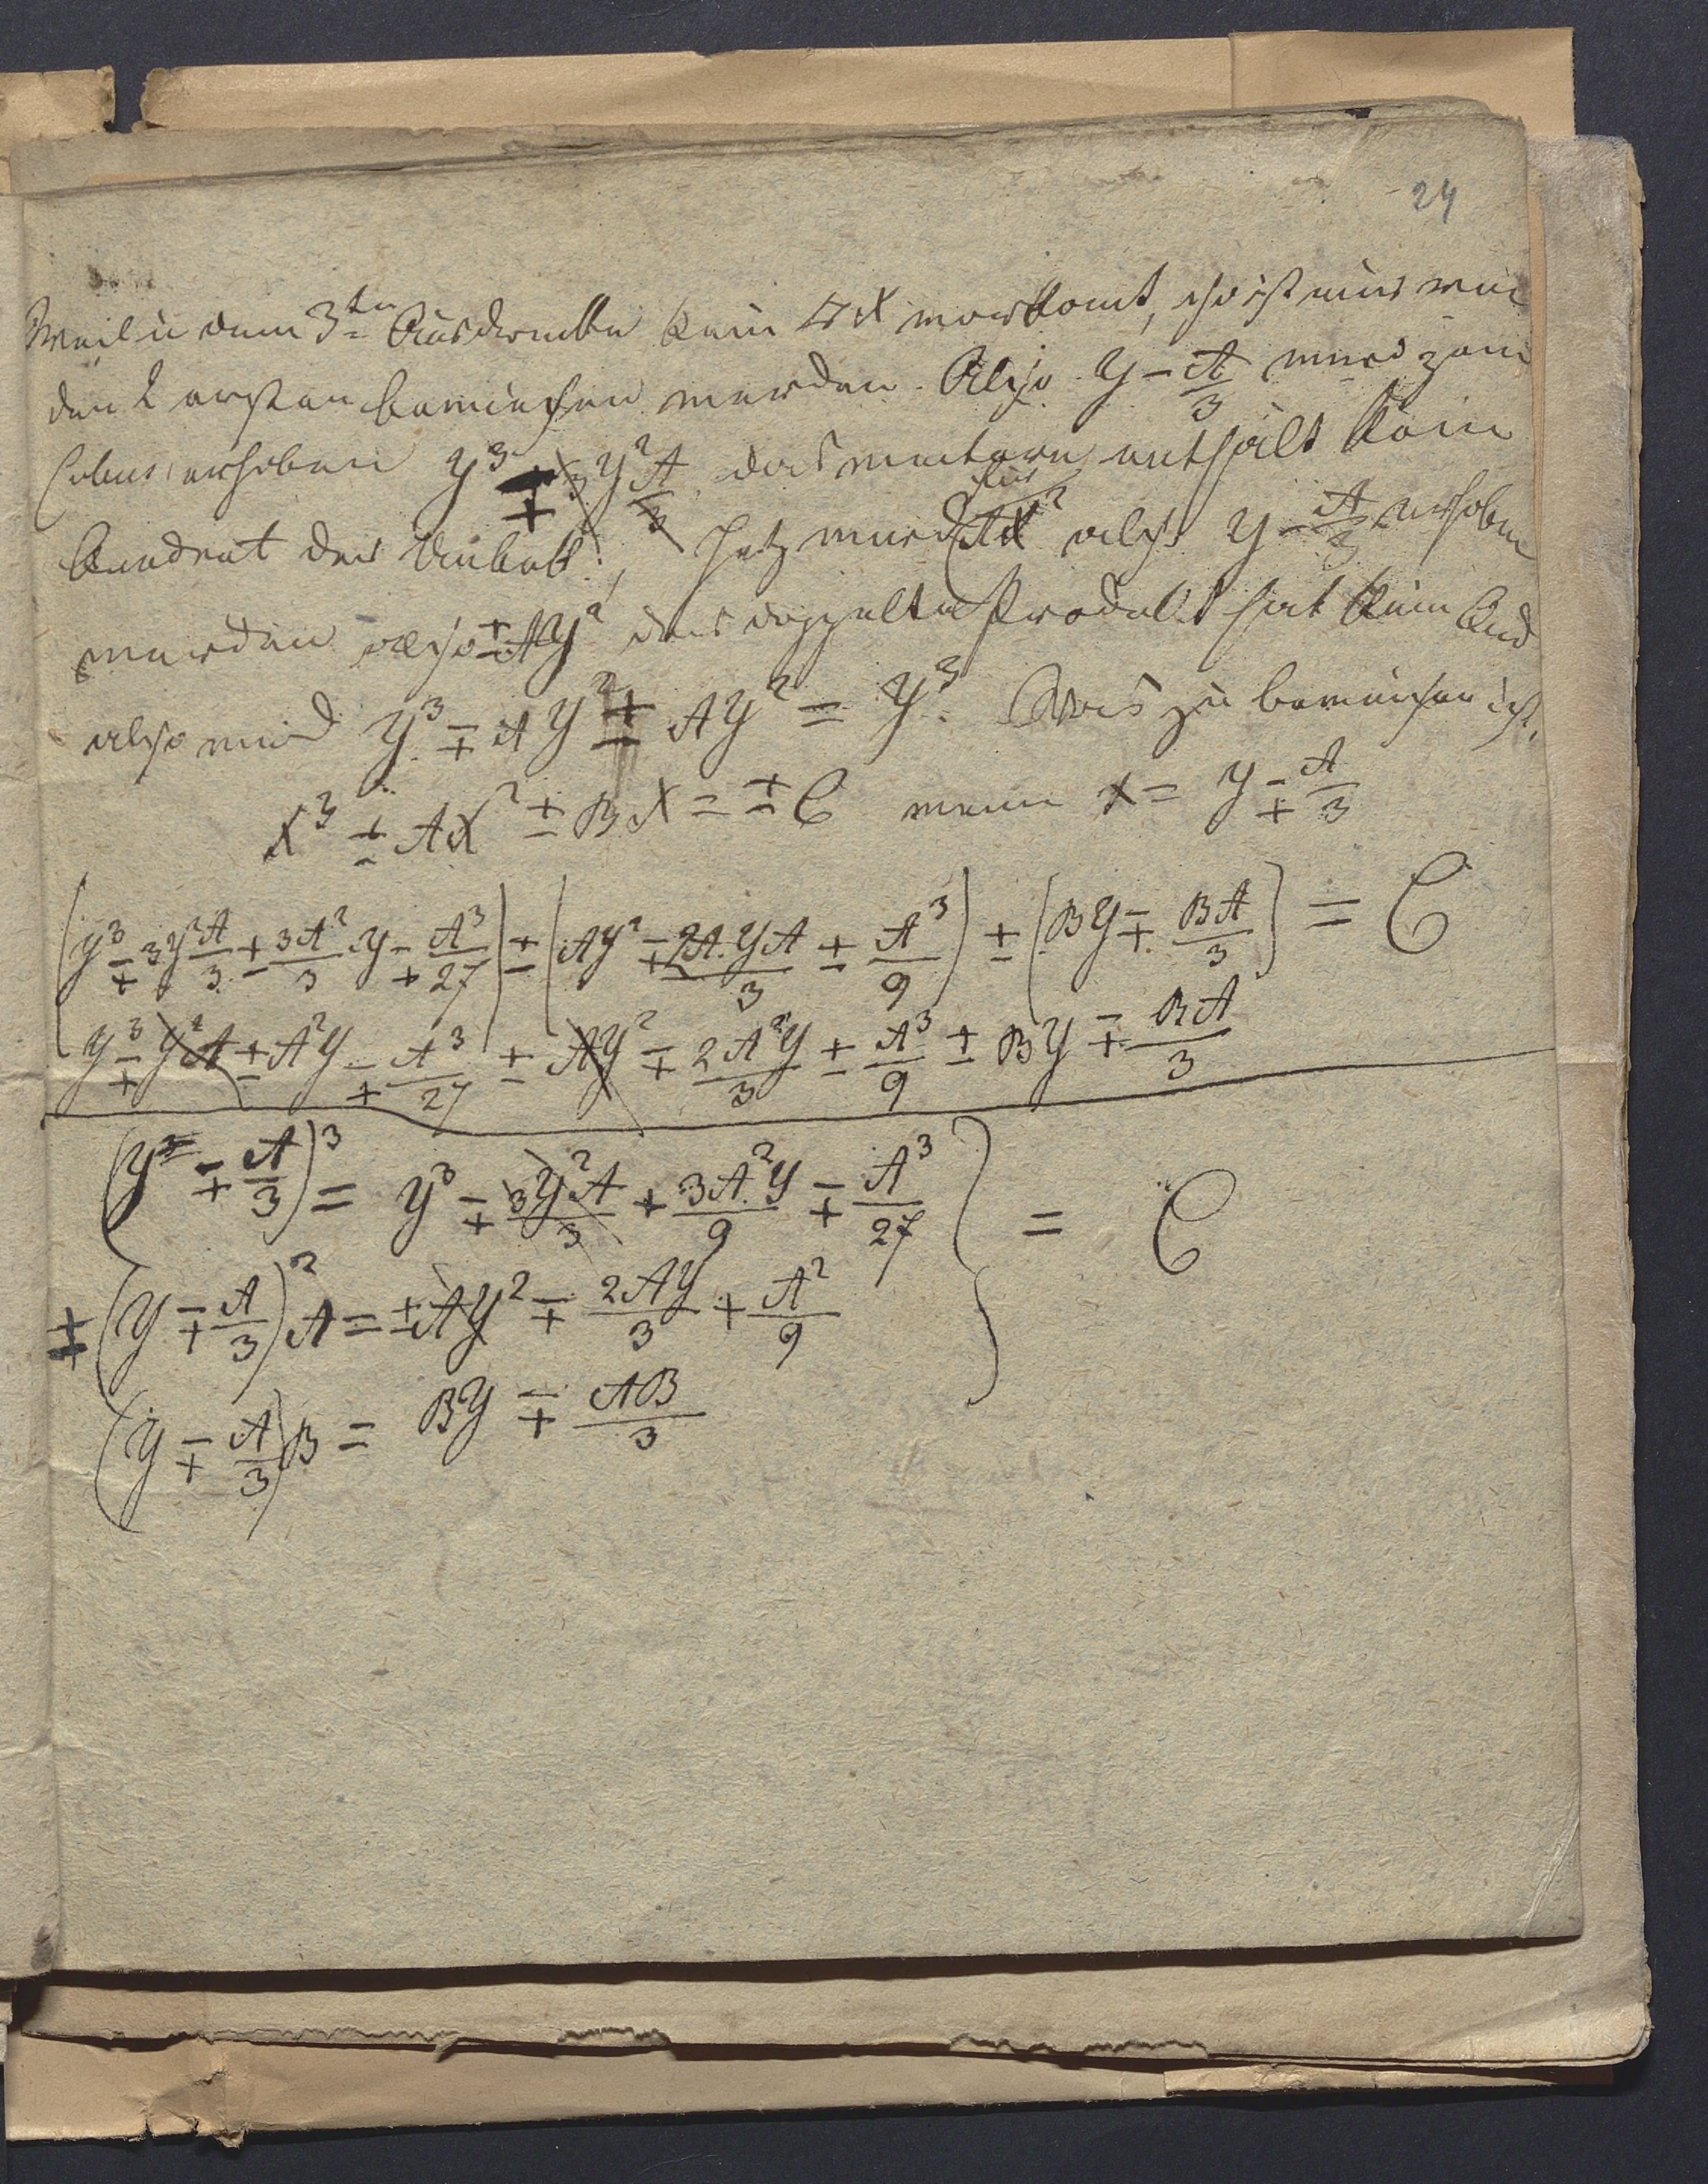 24
Weil in dem 3ten Ausdrucke kein □ X vorkomt, so ist nur von
den 2 ersten bewiesen werden. Also y - A/3 wird zum
Cubus erhoben y³ ∓ 3y²A/3 das weitere enthält kein
Quadrat der Unbek:, Jetz wird AX² also y - A/3 erhoben
werden also ± Ay² das doppelte Produkt hat kein Quad
also wird y³ ∓ Ay² ± Ay² = y³. Was zu beweisen ist.
X³ ± AX² ± BX = ± C wenn x = y ∓ A/3
(y³ ∓ 3y²A/3 ± 3A²/3 y ∓ A³/27) ± (Ay² ∓ 2A.yA/3 ± A³/9) ± (By ∓ BA/3) = C
y³ ∓ y²A ± A²y ∓ A³/27 ± Ay² ∓ 2A²y/3 ± A³/9 ± By ∓ BA/3
(y ∓ A/3)³ = y³ ∓ 3y²A/3 + 3A²y/9 ∓ A³/27 } = C
± (y ∓ A/3)² A = ± Ay² ∓ 2Ay/3 + A²/9
(y ∓ A/3) B = By ∓ AB/3